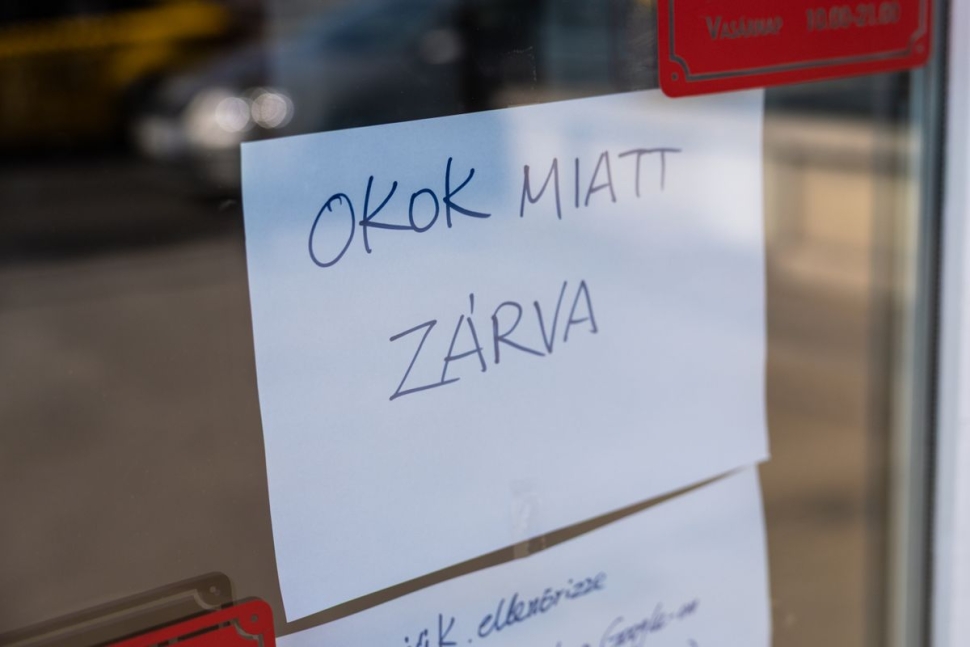 Vasárnap 10.00-21.00
OKOK MIATT
ZÁRVA
ellenőrizze
Google-en